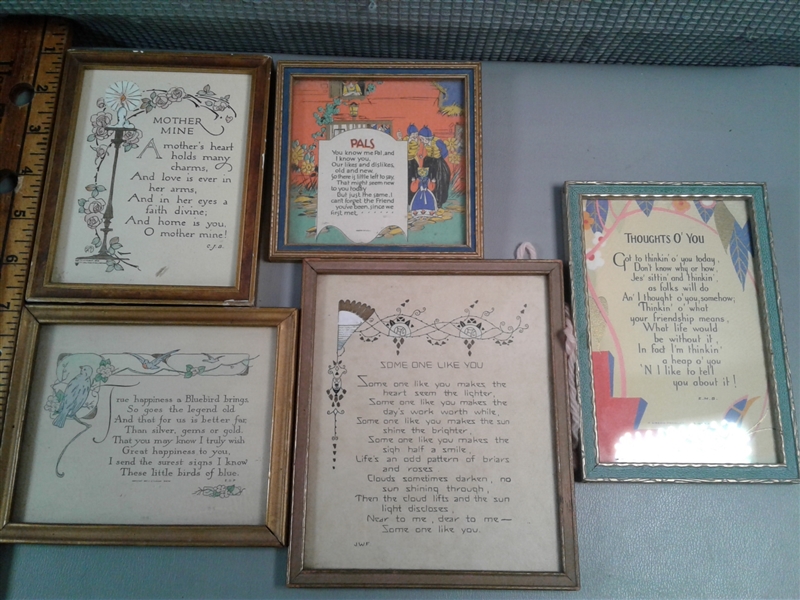 MOTHER
MINE
A mother's heart
holds many
charms,
And love is ever in
her arms,
And in her eyes a
faith divine;
And home is you,
O mother mine!
C.J.B.
PALS
You know me Pal, and
I know you,
Our likes and dislikes,
old and new.
So there is little left to say,
That might seem new
to you today
But just the same, I
can't forget the Friend
you've been, since we
first met.
THOUGHTS O' YOU
Got to thinkin' o' you today,
Don't know why or how,
Jes' sittin' and thinkin'
as folks will do
An' I thought o' you, somehow;
Thinkin' o' what
your friendship means,
What life would
be without it,
In fact I'm thinkin'
a heap o' you
'N I like to tell
you about it!
True happiness a Bluebird brings,
So goes the legend old
And that for us is better far
Than silver, gems or gold.
That you may know I truly wish
Great happiness to you,
I send the surest signs I know
These little birds of blue.
SOME ONE LIKE YOU
Some one like you makes the
heart seem the lighter,
Some one like you makes the
day's work worth while,
Some one like you makes the sun
shine the brighter,
Some one like you makes the
sigh half a smile,
Life's an odd pattern of briars
and roses
Clouds sometimes darken, no
sun shining through,
Then the cloud lifts and the sun
light discloses,
Near to me, dear to me—
Some one like you.
JWF
2
3
4
5
6
7
8